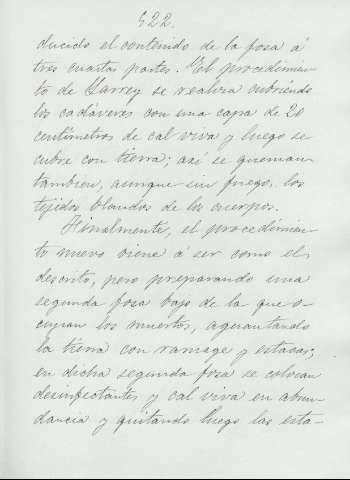 522.
ducido el contenido de la fosa á
tres cuartas partes. El procedimien-
to de Larrey se realiza cubriendo
los cadáveres con una capa de 20
centímetros de cal viva y luego se
cubre con tierra; así se queman
tambien, aunque sin fuego, los
tejidos blandos de los cuerpos.
Finalmente, el procedimien-
to nuevo viene á ser como el
descrito, pero preparando una
segunda fosa bajo de la que o-
cupan los muertos, aguantando
la tierra con ramage y estacas;
en dicha segunda fosa se colocan
desinfectantes y cal viva en abun-
dancia y quitando luego las esta-